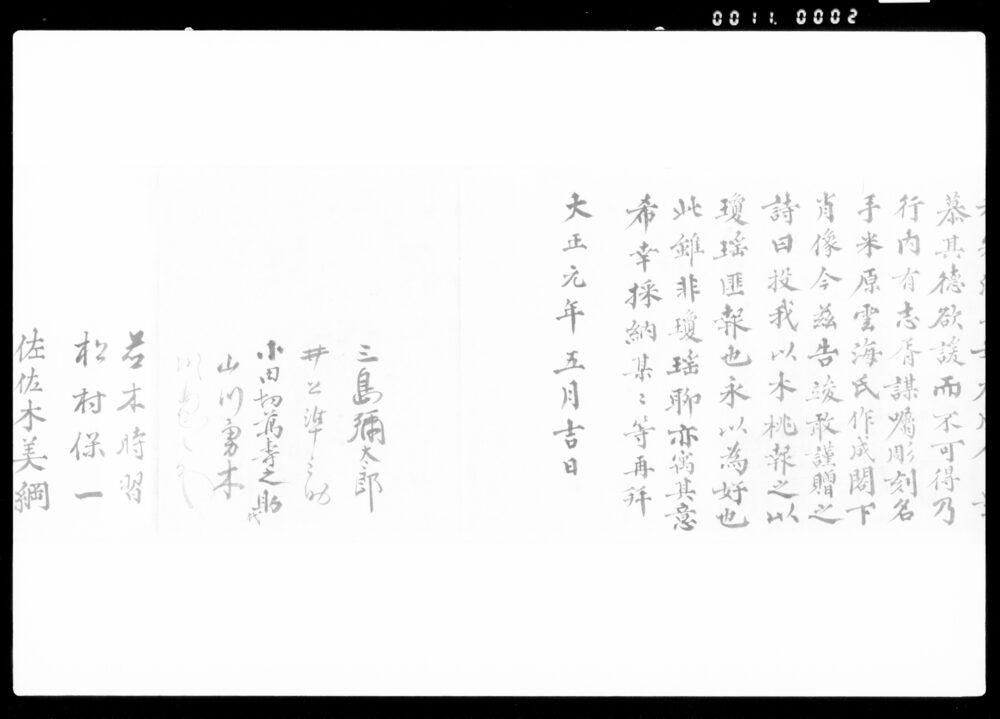 0011.0002
慕其德欲諼而不可得乃
行内有志胥謀囑彫刻名
手米原雲海氏作成閣下
肖像今茲告竣敢謹贈之
詩曰投我以木桃報之以
瓊瑶匪報也永以為好也
此雖非瓊瑶聊亦寓其意
希幸採納某〻等再拜
大正元年五月吉日
三島彌太郎
井上準之助
小田切萬壽之助代
山川勇木
若木時習
松村保一
佐佐木美綱